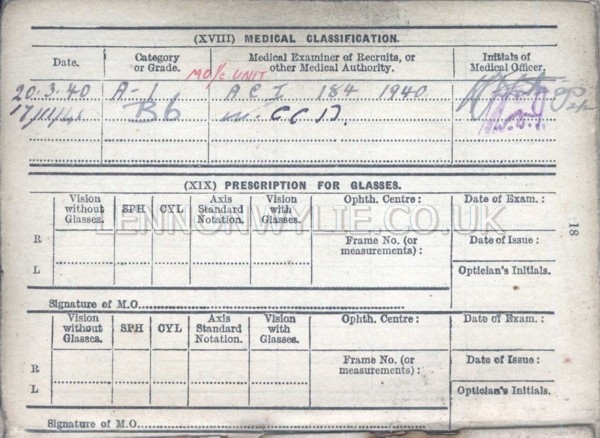 (XVIII) MEDICAL CLASSIFICATION.
Date. Category or Grade. Medical Examiner of Recruits, or other Medical Authority. Initials of Medical Officer.
MO i/c UNIT
20.3.40 A-1 A C I 184 1940
17/11/41 B6 M. C C D.
(XIX) PRESCRIPTION FOR GLASSES.
Vision without Glasses. SPH CYL Axis Standard Notation. Vision with Glasses. Ophth. Centre: Date of Exam.:
LENNONWYLIE.CO.UK
18
R Frame No. (or measurements): Date of Issue:
L Optician's Initials.
Signature of M.O.
Vision without Glasses. SPH CYL Axis Standard Notation. Vision with Glasses. Ophth. Centre: Date of Exam.:
R Frame No. (or measurements): Date of Issue:
L Optician's Initials.
Signature of M.O.